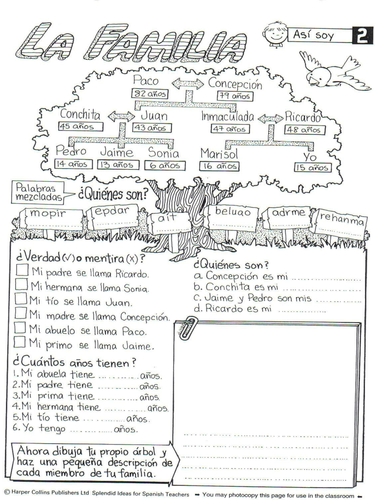 LA FAMILIA
Así soy
2
Paco
Concepción
82 años
79 años
Conchita
Juan
Inmaculada
Ricardo
45 años
43 años
47 años
48 años
Pedro
Jaime
Sonia
Marisol
Yo
14 años
13 años
6 años
16 años
15 años
Palabras mezcladas
¿Quiénes son?
mopir
epdar
ait
beluao
adrme
rehanma
¿Verdad(√) o mentira(x)?
Mi padre se llama Ricardo.
Mi hermana se llama Sonia.
Mi tío se llama Juan.
Mi madre se llama Concepción.
Mi abuelo se llama Paco.
Mi primo se llama Jaime.
¿Cuántos años tienen?
1. Mi abuela tiene ............ años.
2. Mi padre tiene ............ años.
3. Mi prima tiene ............ años.
4. Mi hermana tiene ............ años.
5. Mi tío tiene ............ años.
6. Yo tengo ............ años.
¿Quiénes son?
a. Concepción es mi ............
b. Conchita es mi ............
c. Jaime y Pedro son mis ............
d. Ricardo es mi ............
Ahora dibuja tu propio árbol y
haz una pequeña descripción de
cada miembro de tu familia.
© Harper Collins Publishers Ltd Splendid Ideas for Spanish Teachers — You may photocopy this page for use in the classroom —